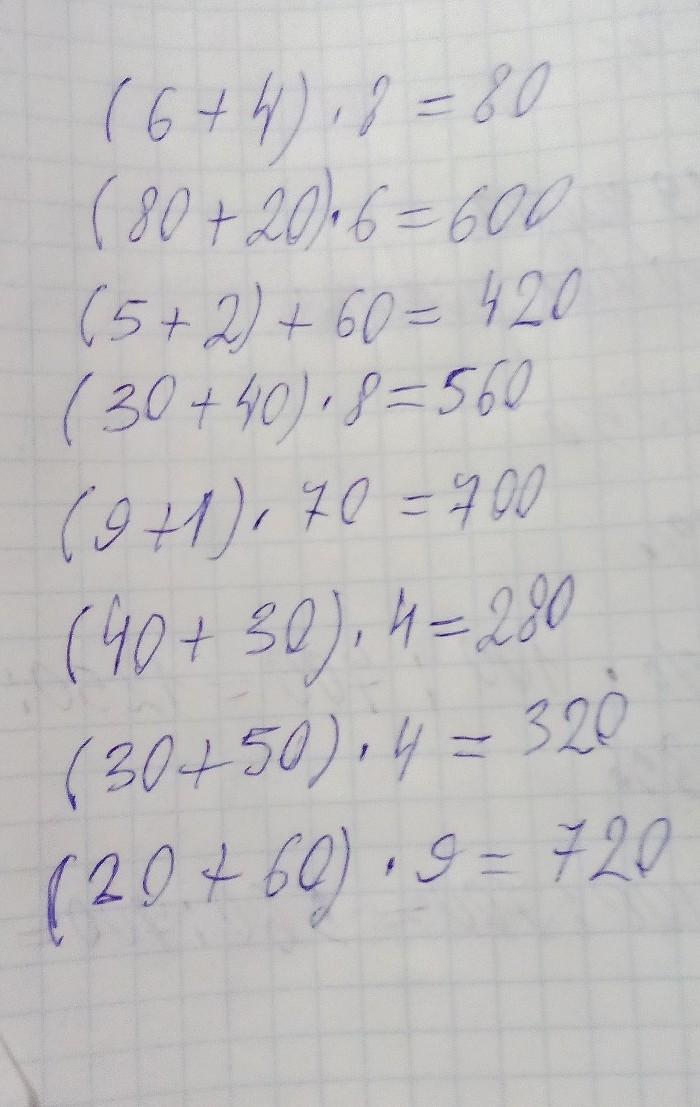 (6+4)·8=80
(80+20)·6=600
(5+2)+60=420
(30+40)·8=560
(9+1)·70=700
(40+30)·4=280
(30+50)·4=320
(20+60)·9=720